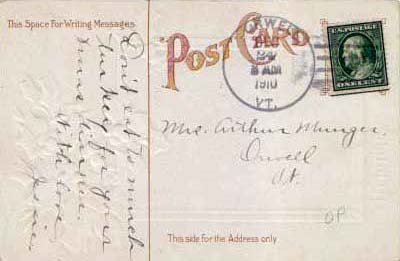 This Space For Writing Messages
POST CARD
ORWELL
DEC
24
8 AM
1910
VT.
U.S. POSTAGE
ONE CENT
Don't eat to much
turkey for your
Xmas dinner.
With love
Jessie
Mrs. Arthur Munger,
Orwell
Vt.
OP
This side for the Address only